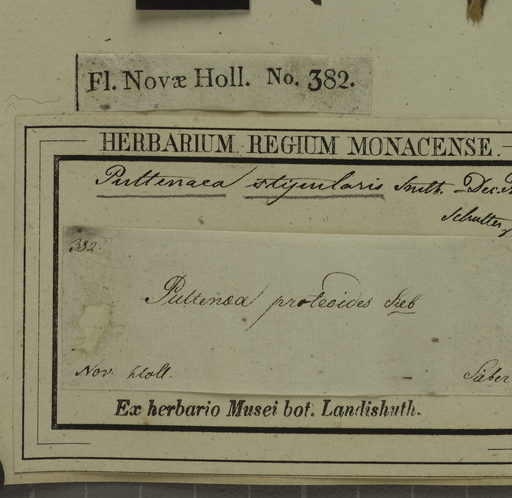 Fl. Novæ Holl. No. 382.
HERBARIUM REGIUM MONACENSE.
Pultenaea stipularis Smith.
Schultes
382
Pultenæa proteoides Sieb
Nov. Holl. Sieber
Ex herbario Musei bot. Landishuth.